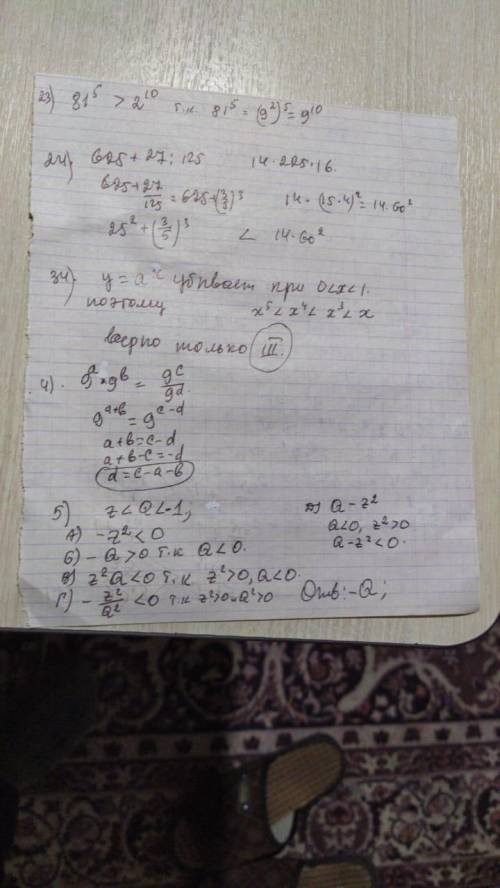 23) 81⁵ > 2¹⁰ т.к. 81⁵ = (9²)⁵ = 9¹⁰
24) 625 + 27 : 125 14 · 225 · 16.
625 + 27/125 = 625 + (3/5)³ 14 · (15 · 4)² = 14 · 60²
25² + (3/5)³ < 14 · 60²
34) y = aˣ убывает при 0<x<1.
поэтому x⁵ < x⁴ < x³ < x
верно только III.
4). 9ᵃ · 9ᵇ = 9ᶜ/9ᵈ
9ᵃ⁺ᵇ = 9ᶜ⁻ᵈ
a+b=c-d
a+b-c=-d
d=c-a-b
5) z < a < -1;
А) -z² < 0
Б) -a > 0 т.к a < 0.
В) z²a < 0 т.к. z² > 0, a < 0.
Г) -z²/a² < 0 т.к z² > 0 и a² > 0
Д) a - z²
a < 0, z² > 0
a - z² < 0.
Отв: -a;